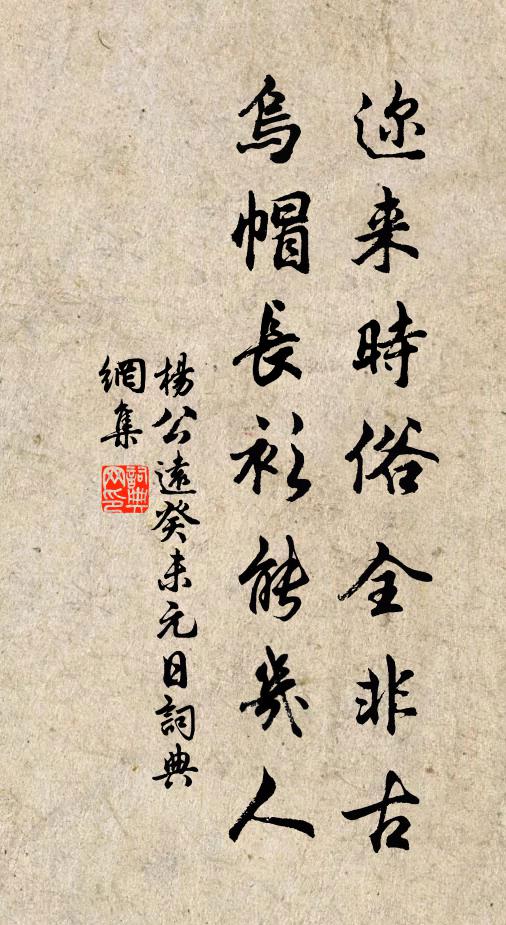 迩来時俗全非古
烏帽長衫能幾人
楊公遠癸未元日詞典
網集
詞典
网印